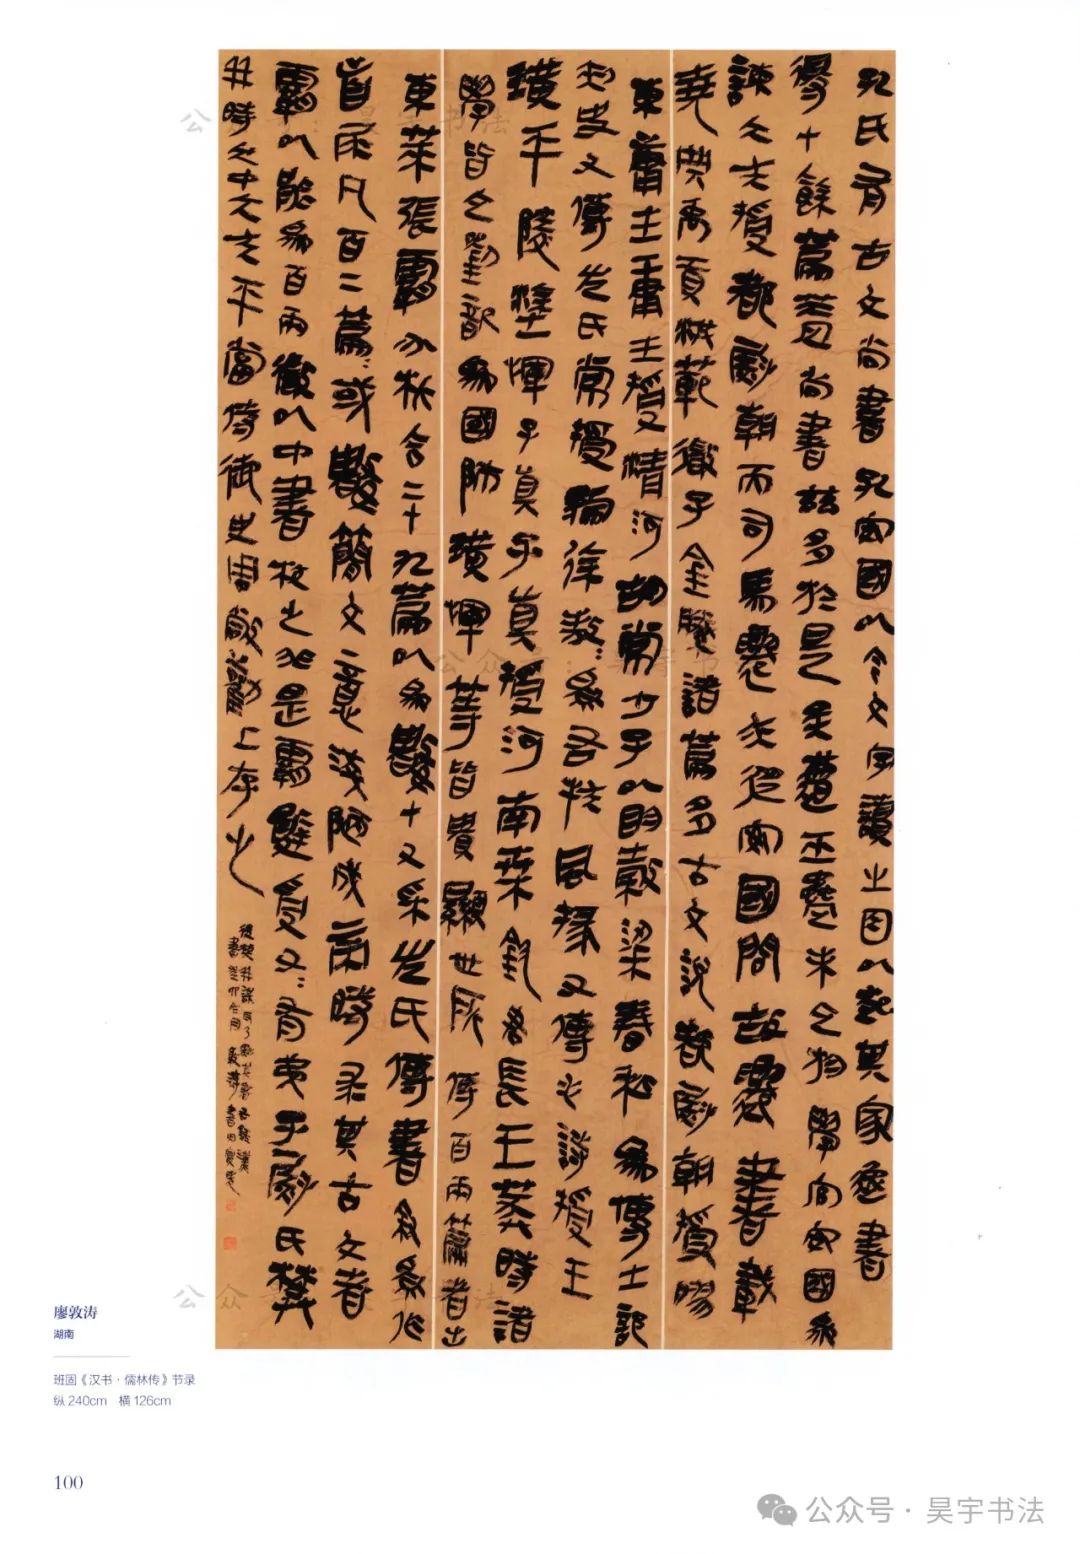 孔氏有古文尚書孔安國以今文字讀之因以起其家逸書
得十餘篇蓋尚書茲多於是矣遭巫蠱未立於學官安國為
諫大夫授都尉朝而司馬遷亦從安國問故遷書載
堯典禹貢洪範微子金縢諸篇多古文說都尉朝授膠
東庸生庸生授清河胡常少子以明穀梁春秋為博士部
刺史又傳左氏常授虢徐敖〻為右扶風掾又傳毛詩授王
璜平陵塗惲子真子真授河南桑欽君長王莽時諸
學皆立劉歆為國師璜惲等皆貴顯世所傳百兩篇者出
東萊張霸分析合二十九篇以為數十又采左氏傳書敘為作
首尾凡百二篇〻或數簡文意淺陋成帝時求其古文者
霸以能為百兩徵以中書校之非是霸辭受父〻有弟子尉氏樊
並時大中大夫平當侍御史周敞勸上存之
廖敦涛
湖南
班固《汉书·儒林传》节录
纵 240cm 横 126cm
100
公众号·昊宇书法